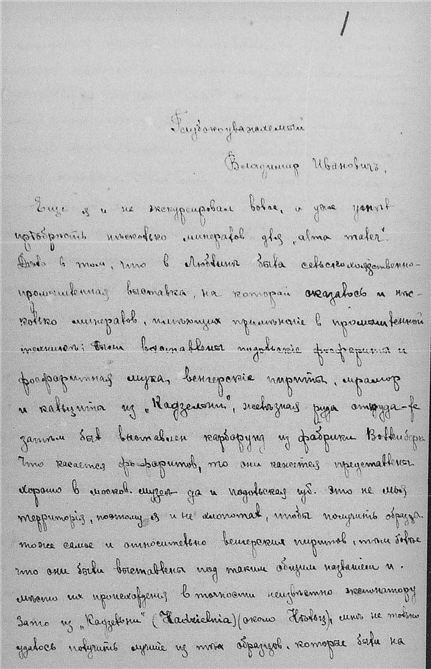 1
Глубокоуважаемый
Владимир Ивановичъ.
Еще я и не экскурсировал вовсе, а уже успѣв
прiобрѣсть нѣсколько минералов для „alma mater“.
Дело в том, что в Люблинѣ была сельскохозяйственно-
промышленная выставка, на которой оказалось и нѣ-
сколько минералов, имѣющих примѣненiе в промышленной
техникѣ: были выставлены подольскiе фосфориты и
фосфоритная мука, венгерскiе пириты, мрамор
и кальцита из „Кадзельни“, железная руда откуда-то
затѣм был выставлен карборунд из фабрики
Что касается фосфоритов, то они кажется представлены
хорошо в москов. музеѣ да и подольская губ. это не моя
территорiя, поэтому я и не хлопотал, чтобы получить образцы
тоже самое и относительно венгерских пиритов, тѣм более
что они были выставлены под таким общим названiем и
мѣсто их происхожденiя в точности неизвѣстно экспонатору
Зато из „Кадзельни“ (Kadzielnia) (около Кѣльц), мнѣ не только
удалось получить лучшие из тѣх образцов, которые были на